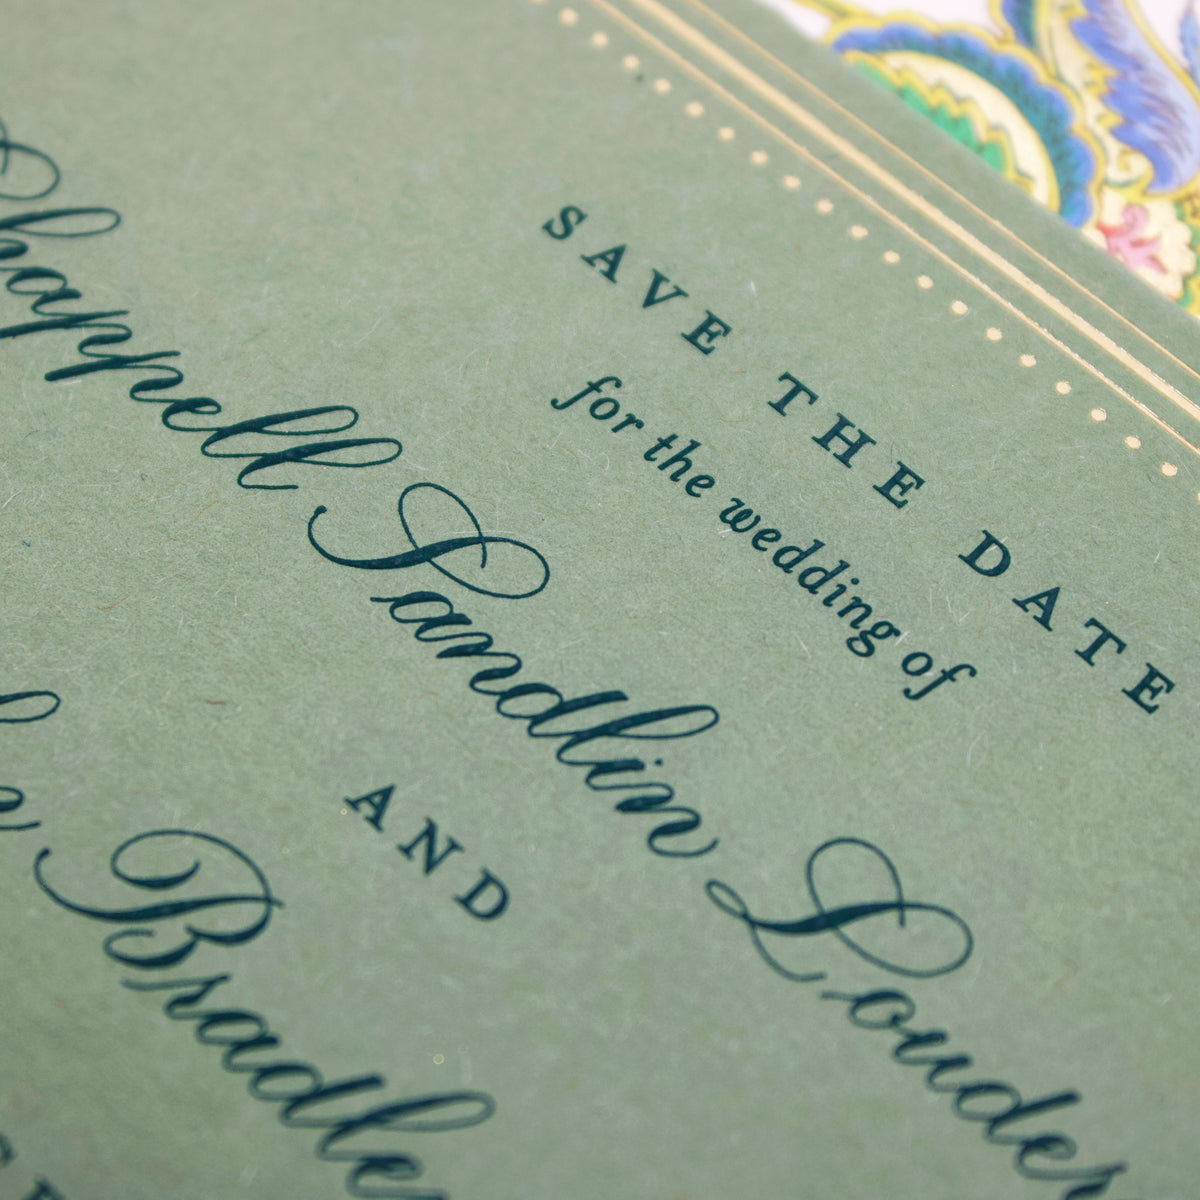 SAVE THE DATE
for the wedding of
Chappell Sandlin Louder
AND
Bradle